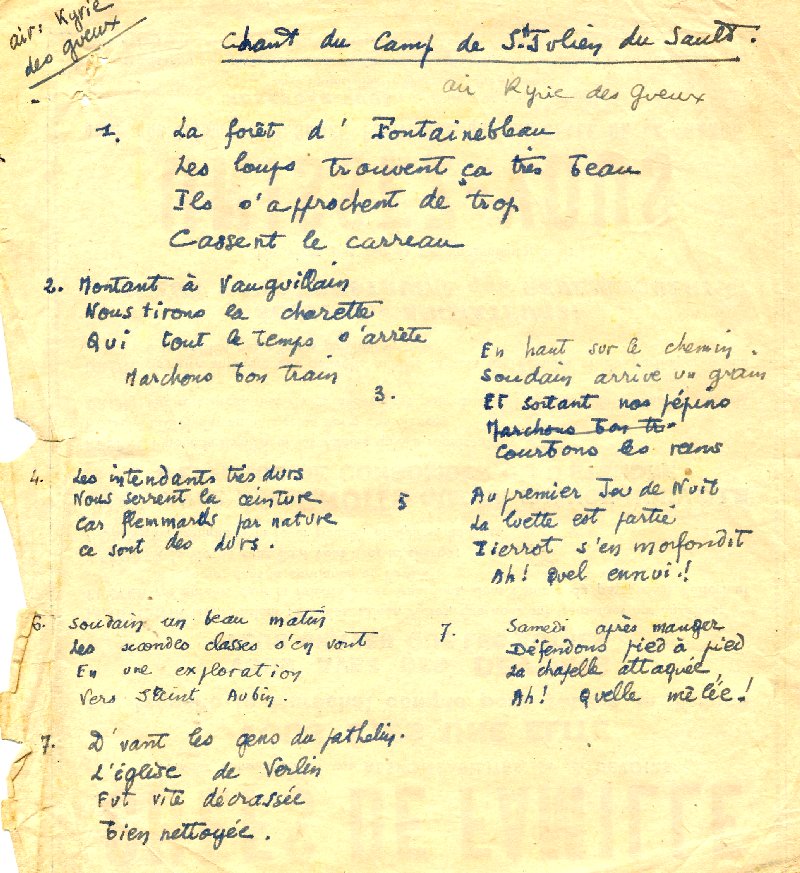 air: Kyrie
des gueux
Chant du Camp de St Julien du Sault.
air Kyrie des Gueux
1. La forêt d' Fontainebleau
Les loups trouvent ça très beau
Ils s'approchent de trop
Cassent le carreau
2. Montant à Vauguillain
Nous tirons la charette
Qui tout le temps s'arrête
Marchons bon train
3. En haut sur le chemin.
Soudain arrive un grain
Et sortant nos pépins
Marchons bon tr
Courbons les reins
4. Les intendants très durs
Nous serrent la ceinture
Car flemmards par nature
Ce sont des durs.
5 Au premier Jeu de Nuit
La luette est partie
Pierrot s'en morfondit
Ah! Quel ennui!
6. Soudain un beau matin
Les secondes classes s'en vont
En une exploration
Vers Saint Aubin.
7. Samedi après manger
Défendons pied à pied
La chapelle attaquée,
Ah! Quelle mêlée!
7. D'vant les gens du pathelin.
L'église de Verlin
Fut vite décrassée
Bien nettoyée.